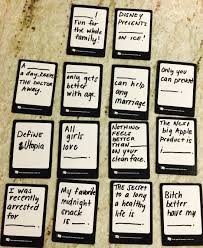 _____!
Fun for
the whole
family!
DISNEY
PRESENTS:
_____
ON ICE!
A _____
a day keeps
THE DOCTOR
AWAY.
_____
only gets
better with
age.
_____
can help
any
marriage
Only you
can prevent
_____.
Define
Utopia
All
girls
love
_____.
NOTHING
FEELS
BETTER THAN
_____ ON
your clean
face.
The Next
big Apple
Product is
i_____!
I was
recently
arrested
for _____.
My favorite
midnight
snack is
_____.
The secret
to a long
& healthy
life is
_____.
Bitch
better
have my
_____!